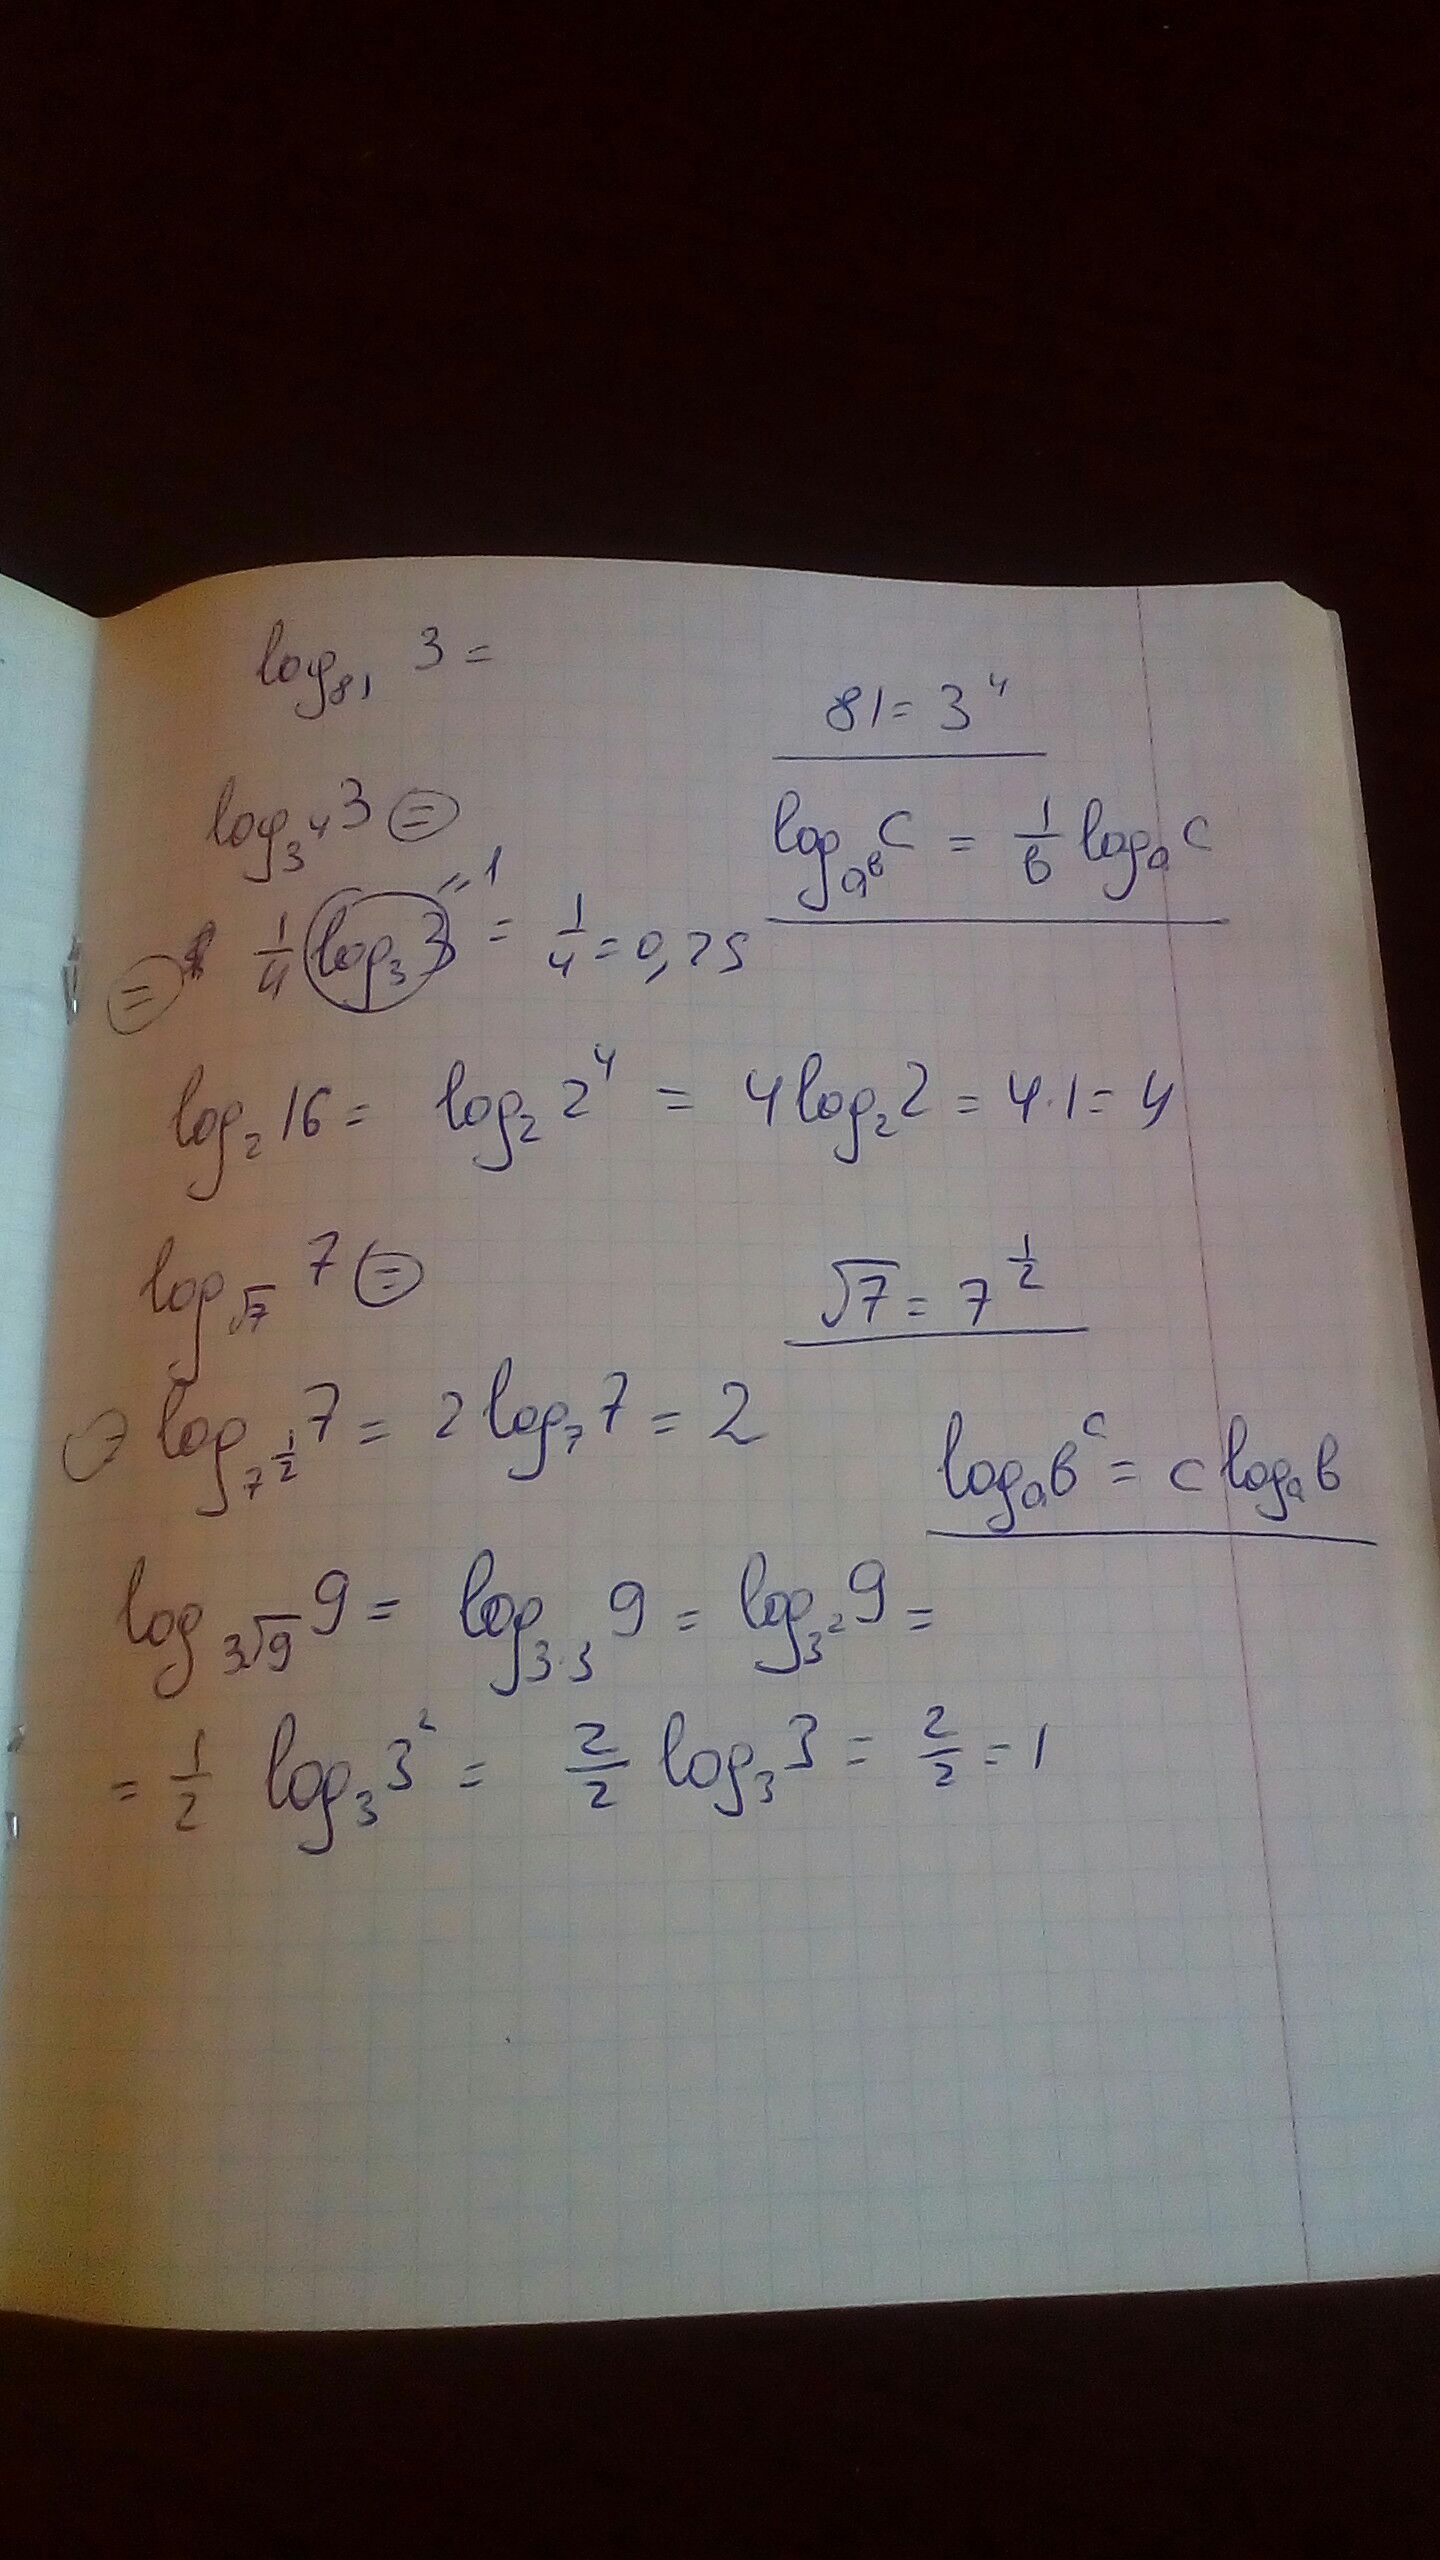 log₈₁ 3 =
81 = 3⁴
log_{3⁴} 3 =
log_{a^b} c = 1/b log_a c
= 1/4 log₃ 3 = 1/4 = 0,25
= 1
log₂ 16 = log₂ 2⁴ = 4 log₂ 2 = 4·1 = 4
log_{√7} 7 =
√7 = 7^{1/2}
= log_{7^{1/2}} 7 = 2 log₇ 7 = 2
log_a b^c = c log_a b
log_{3√9} 9 = log_{3·3} 9 = log_{3²} 9 =
= 1/2 log₃ 3² = 2/2 log₃ 3 = 2/2 = 1